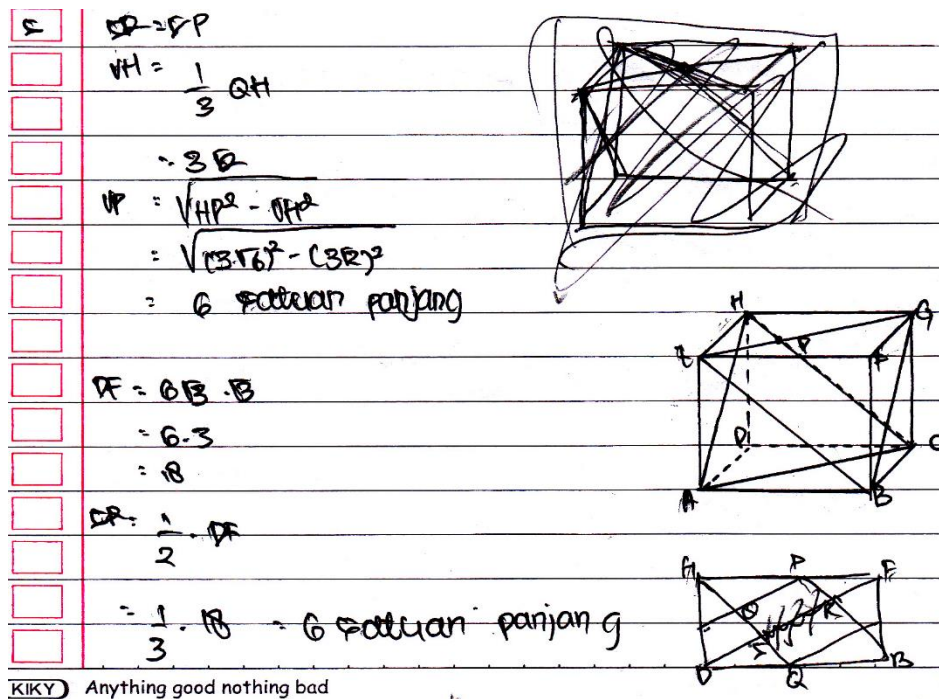 VH = 1/3 QH
= 3√2
VP = √HP² - VH²
= √(3√6)² - (3√2)²
= 6 satuan panjang
DF = 6√3 . √3
= 6.3
= 18
= 1/2 . DF
= 1/3 . 18 = 6 satuan panjang
H G
E P F
D C
A B
H P F
D Q B
KIKY Anything good nothing bad